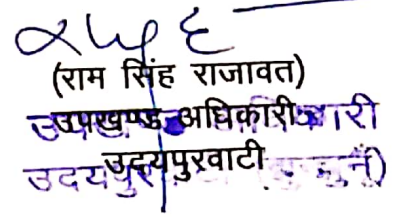 (राम सिंह राजावत)
उपखण्ड अधिकारी
उदयपुरवाटी